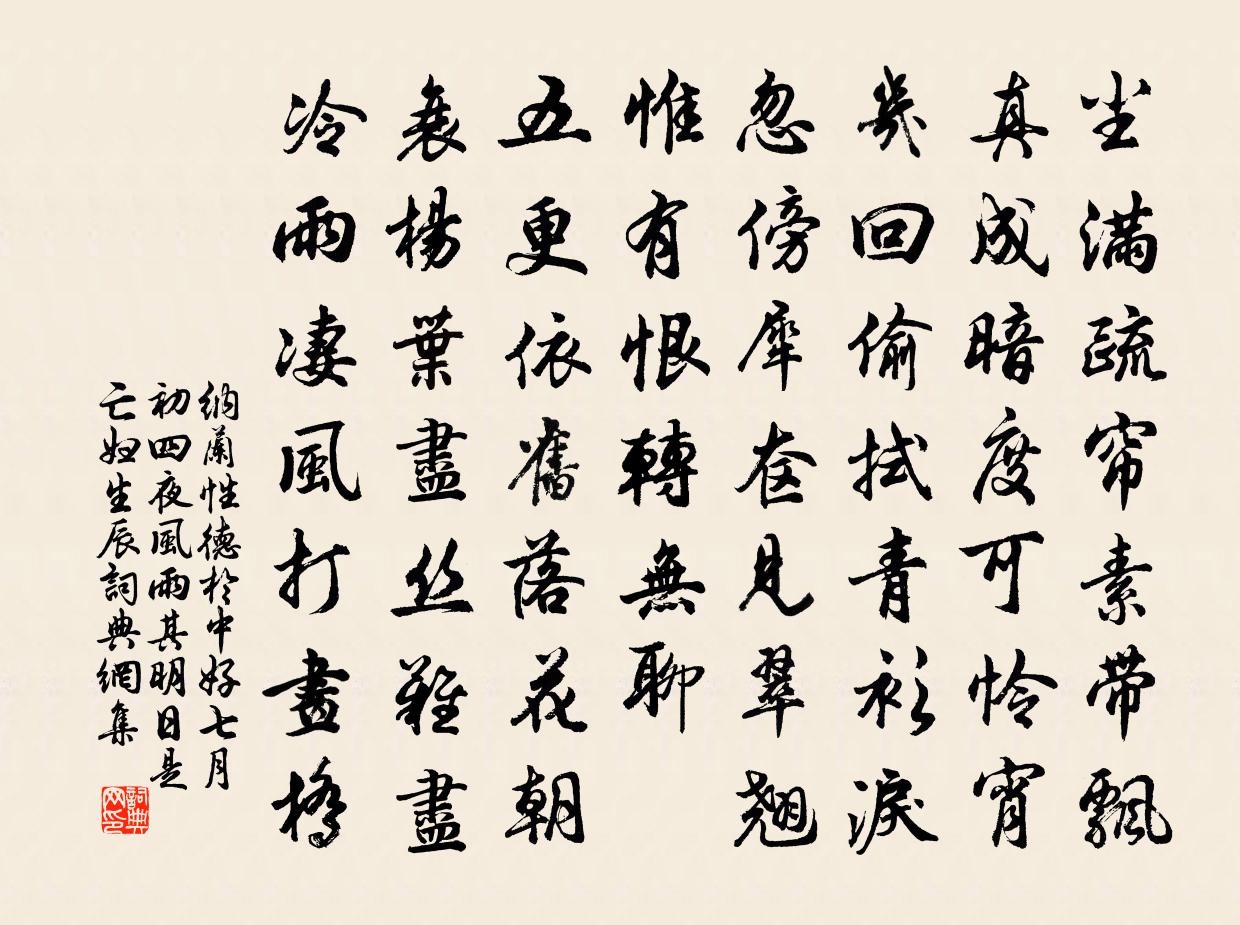 尘滿疏帘素帶飄
真成暗度可怜宵
幾回偷拭青衫淚
忽傍犀奁見翠翹
惟有恨轉無聊
五更依舊落花朝
衰楊葉盡丝難盡
冷雨凄風打畫橋
納蘭性德於中好七月
初四夜風雨其明日是
亡婦生辰詞典網集
詞典
网印